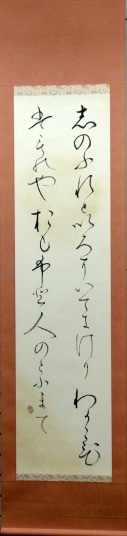 志のふれと以ろ耳いてにけり わ可こひ
者ものやおも布と人のとふまて